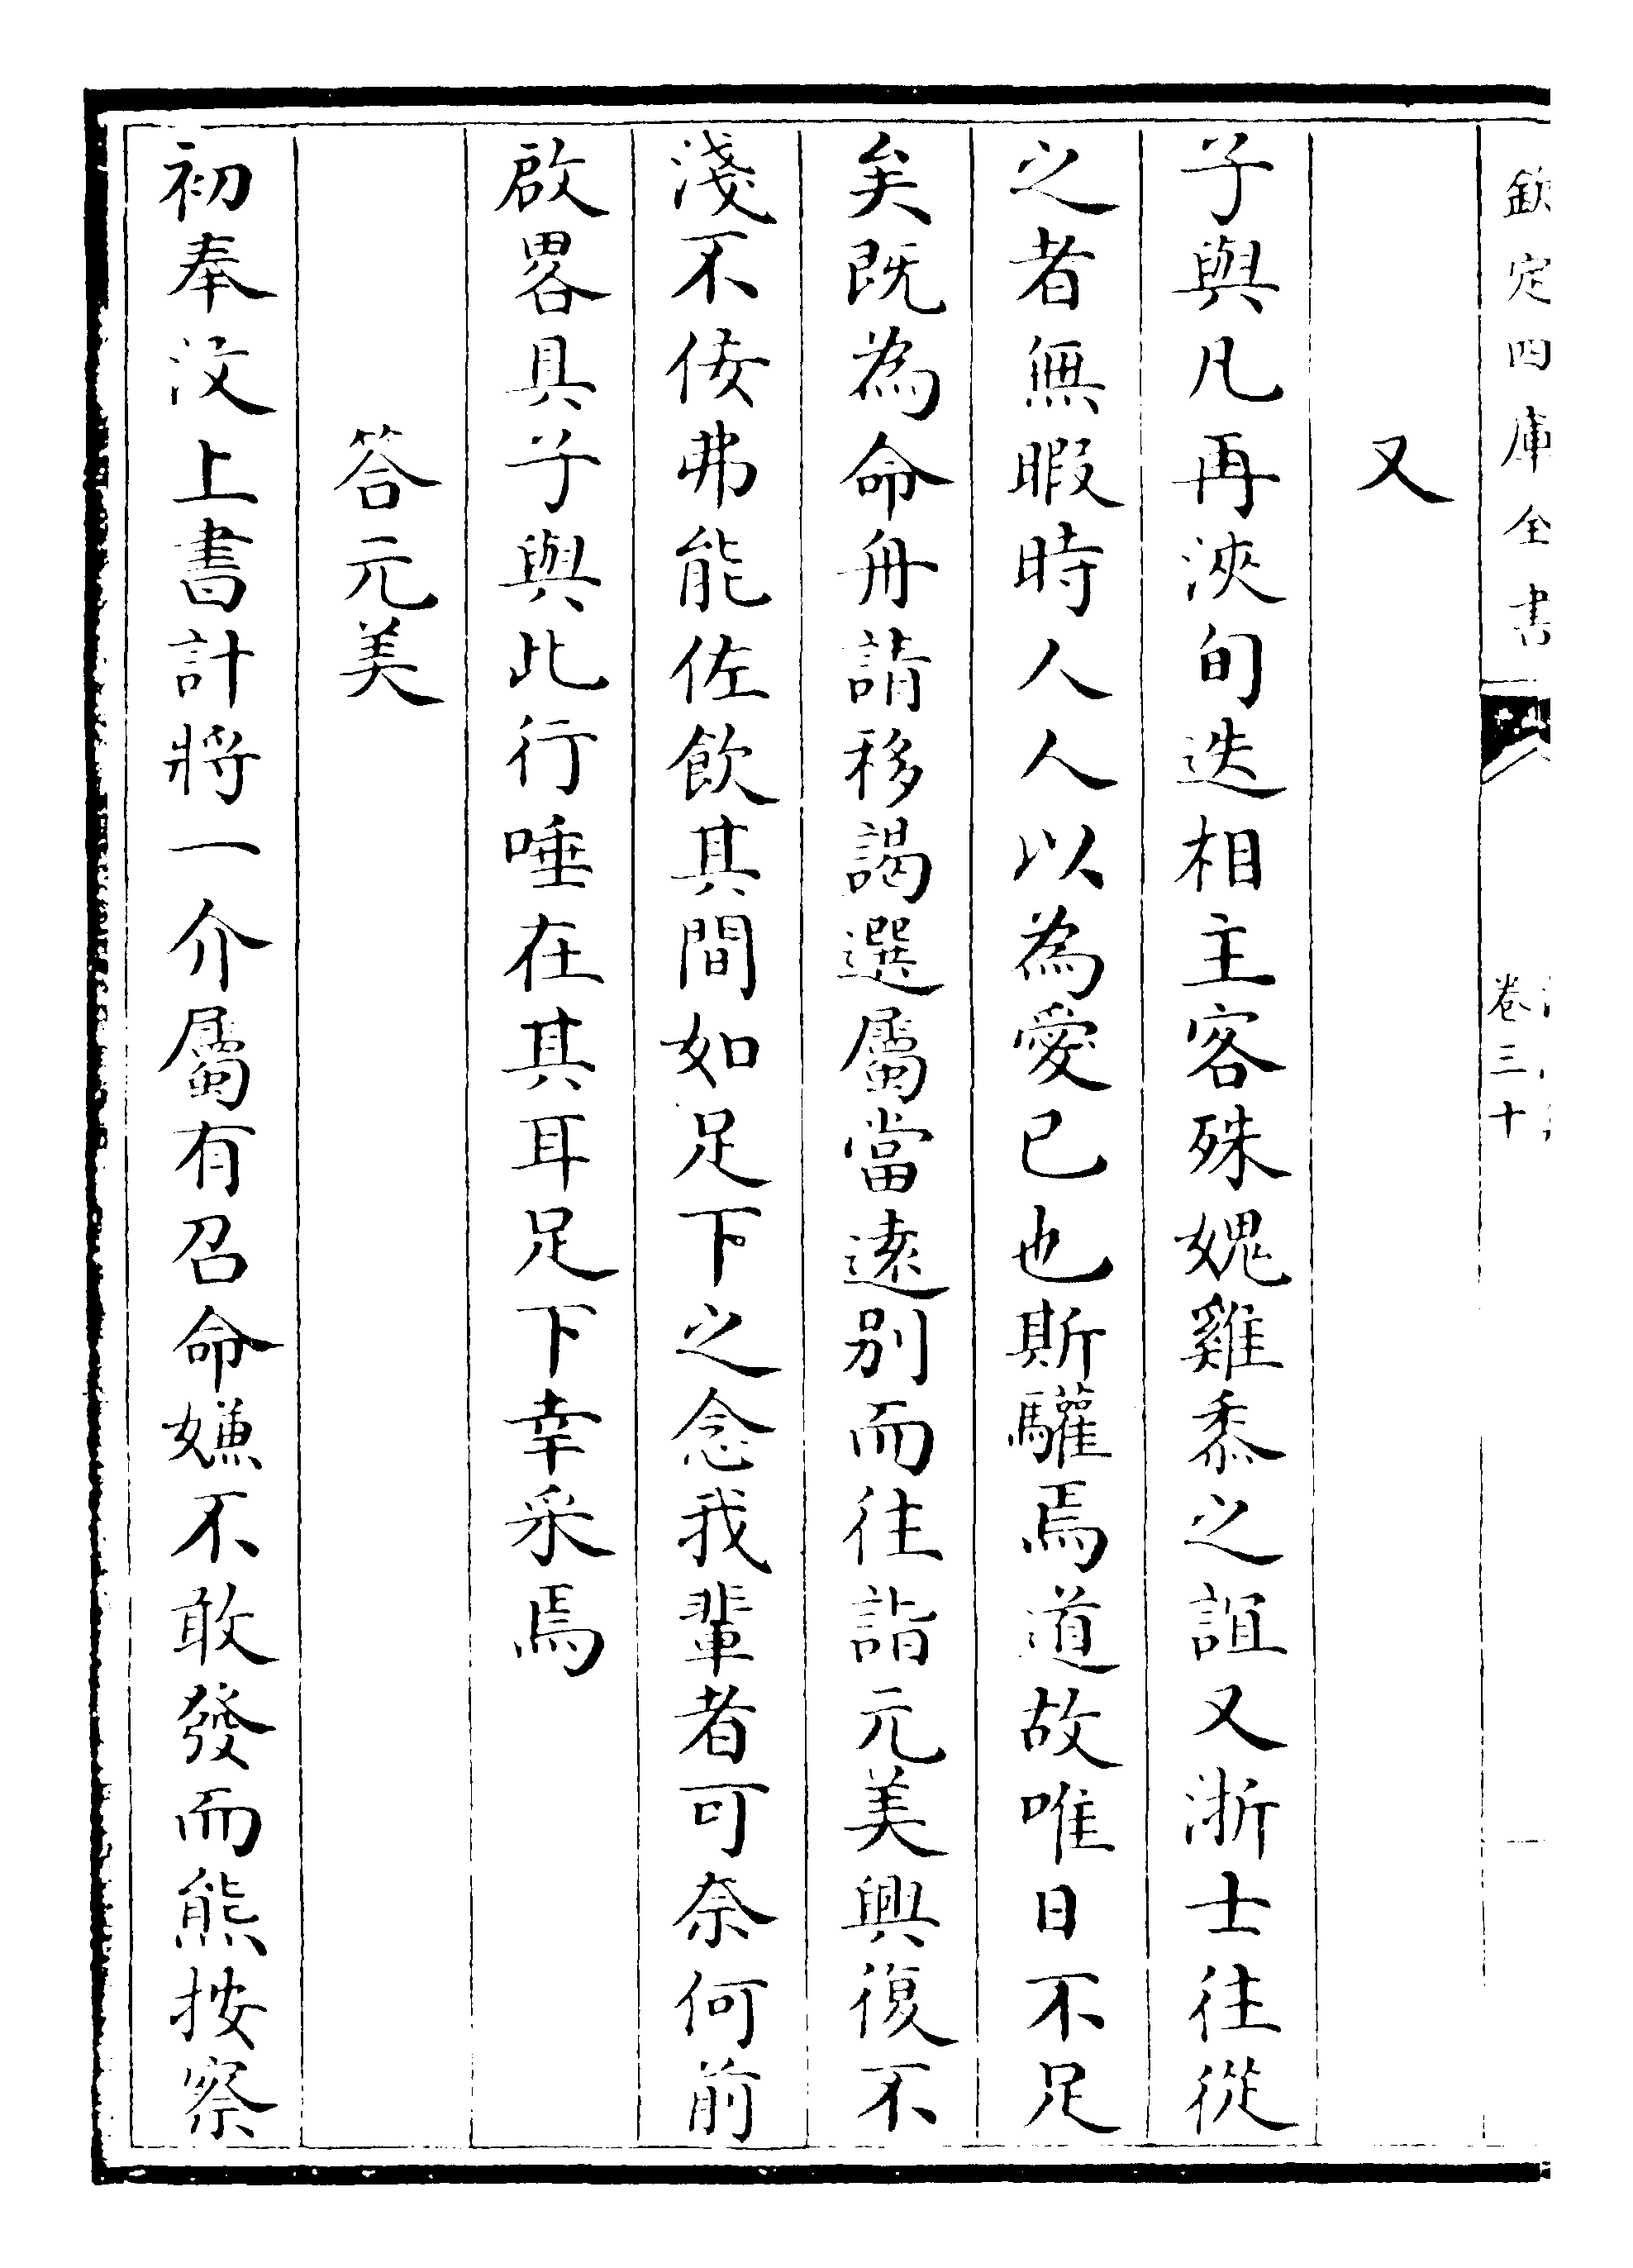 欽定四庫全書
卷三十
又
子與凡再浹旬迭相主客殊媿雞黍之誼又浙士往從
之者無暇時人人以為愛已也斯驩焉道故唯日不足
矣既為命舟請移謁選屬當遠別而往詣元美興復不
淺不佞弗能佐飲其間如足下之念我輩者可奈何前
啟畧具子與此行唾在其耳足下幸采焉
答元美
初奉汶上書計將一介屬有召命嫌不敢發而熊按察